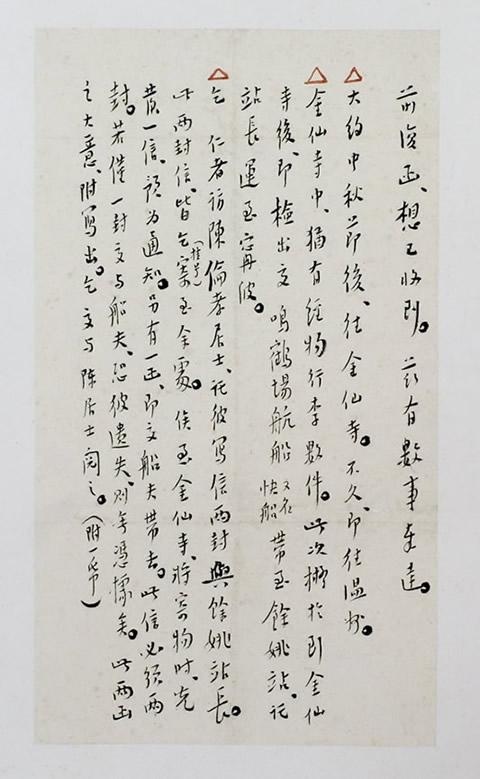 前復函、想已收到。茲有數事奉達。
△大約中秋節後、往金仙寺。不久、即往溫州。
△金仙寺中、猶有經物行李數件。此次擬於到金仙
寺後、即檢出交鳴鶴場航船又名快船帶至餘姚站、託
站長運至寧波。
△乞 仁者訪陳倫孝居士、託彼寫信兩封與餘姚站長。
此兩封信、皆乞寄(挂号)至余處。俟至金仙寺、將寄物时、先
發一信、預为通知。另有一函、即交船夫帶去。此信必须两
封。若僅一封交与船夫、恐彼遺失、则無憑據矣。此两函
之大意、附寫出。乞交与陈居士閱之。(附一帋)